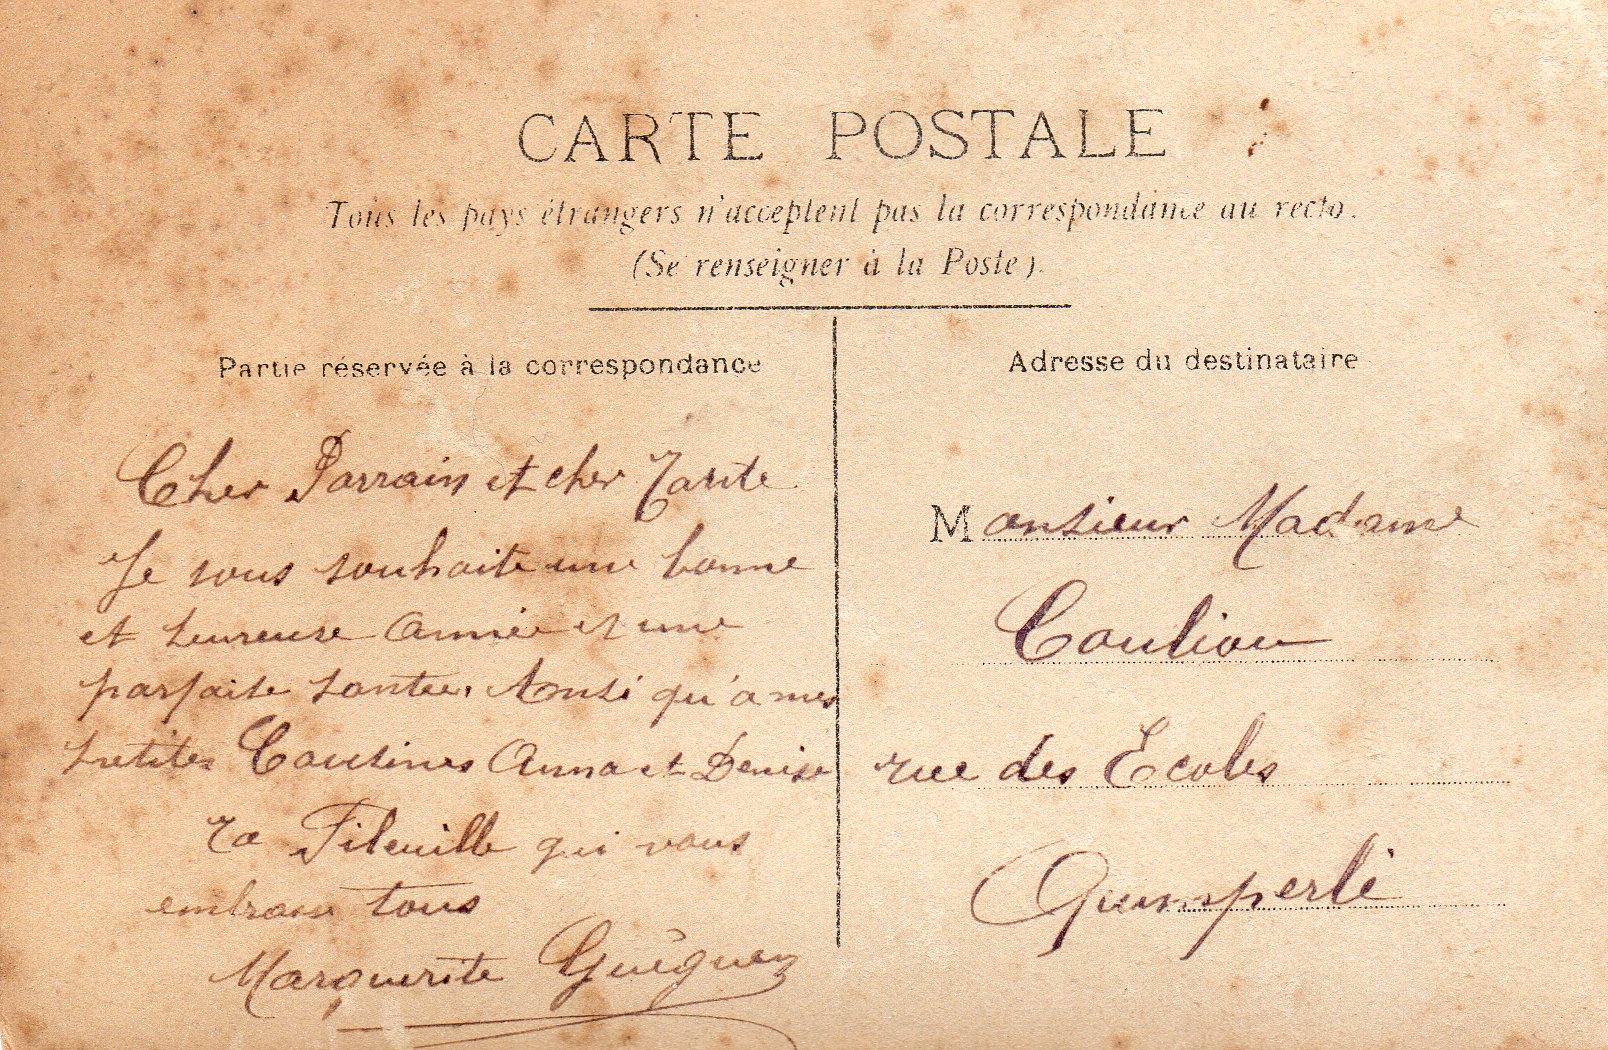 CARTE POSTALE
Tous les pays étrangers n'acceptent pas la correspondance au recto.
(Se renseigner à la Poste).
Partie réservée à la correspondance
Adresse du destinataire
Cher Parrain et cher Tante
Je vous souhaite une bonne
et heureuse année et une
parfaite santée. Ainsi qu'a mes
petites Cousines Anna et Denise
ta Filleuille qui vous
embrasse tous
Marguerite Guéguen
Monsieur Madame
Couliou
rue des Ecoles
Quimperlé